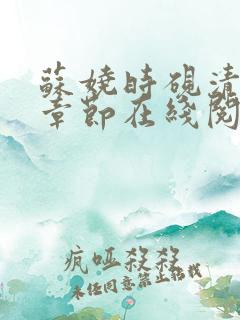 蘇嬈時硯清
章節在綫閱
疯哑殺殺
未经同意禁止转载